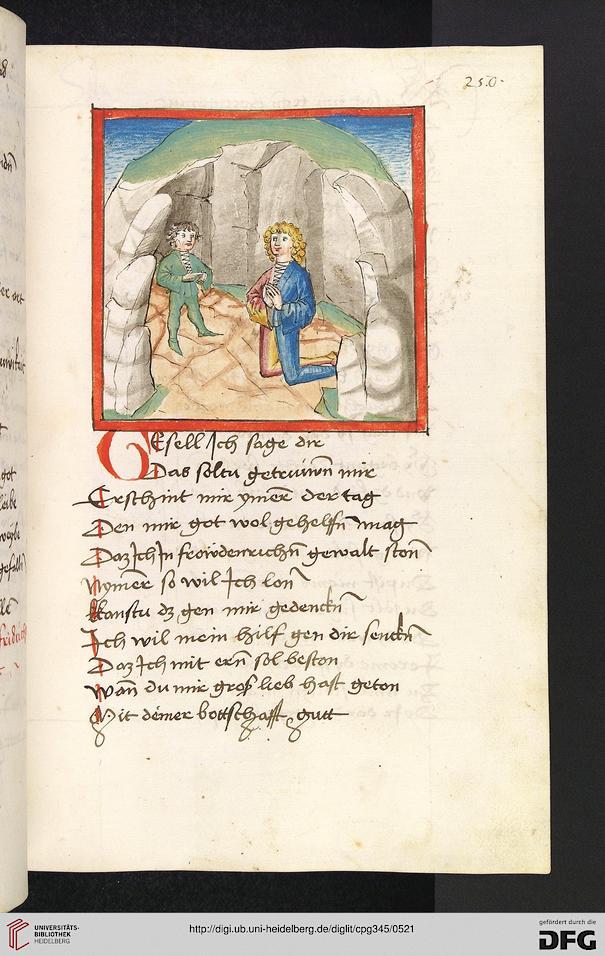 250
GEsell Ich sage dir
Das soltu getruwen mir
Erschint mir ymer der tag
Den mir got wol gehelffn mag
Daz Ich In frowdenrichn gewalt ston
Nymer so wil Ich lon
Kanstu dz gen mir gedenckn
Ich wil mein hilf gen dir senckn
Daz Ich mit ern sol beston
Wan du mir groß lieb hast geton
Mit deiner bottschafft gutt
UNIVERSITÄTS-
BIBLIOTHEK
HEIDELBERG
http://digi.ub.uni-heidelberg.de/diglit/cpg345/0521
gefördert durch die
DFG